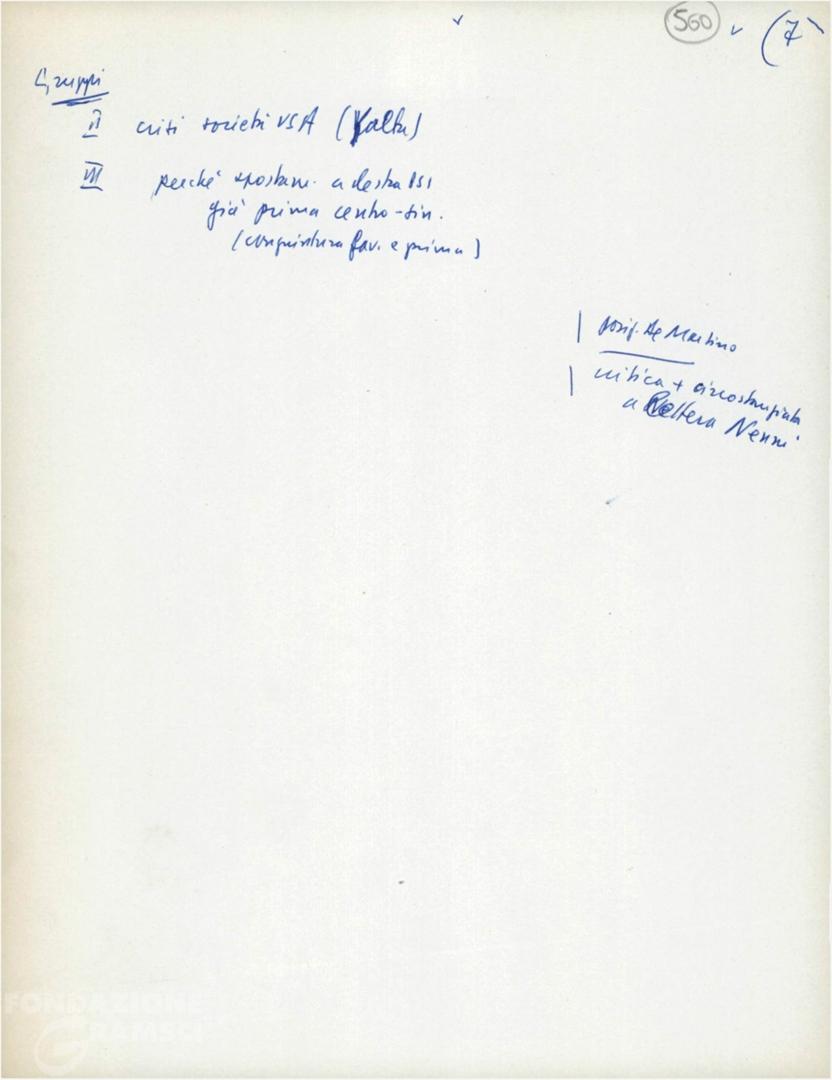 560 (7)
Gruppi
II crisi società USA (Yalta)
VII perché spostam. a destra PSI
già prima centro-sin.
(congiuntura fav. e prima)
posiz. De Martino
critica + circostanziata
a lettera Nenni
FONDAZIONE
GRAMSCI